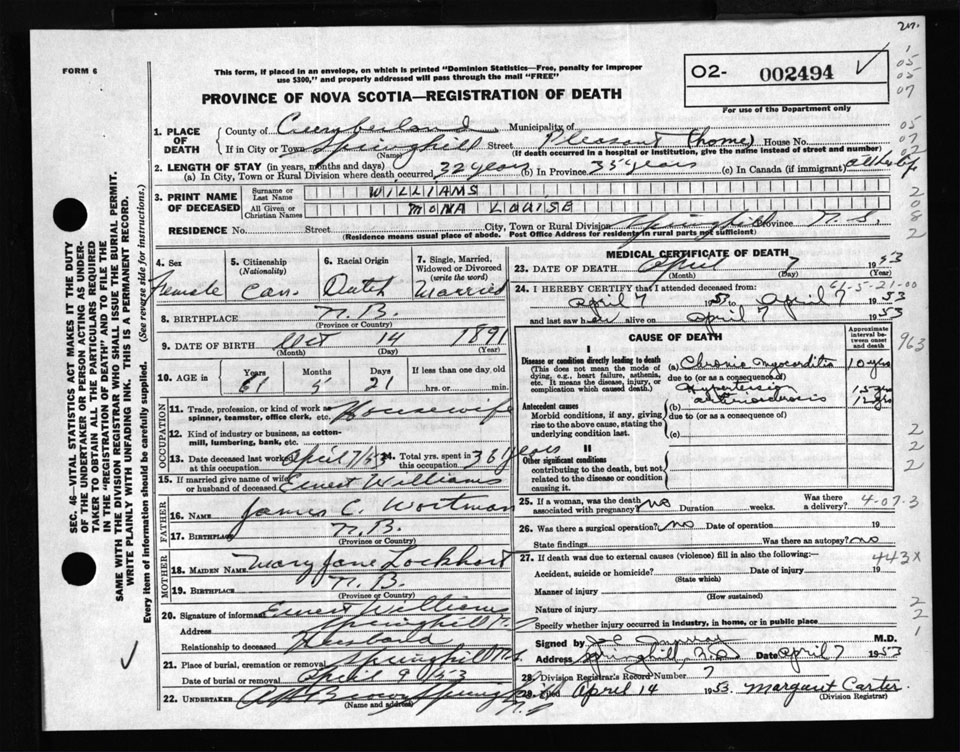 2m.
FORM 6
This form, if placed in an envelope, on which is printed "Dominion Statistics—Free, penalty for improper use $300," and properly addressed will pass through the mail "FREE"
O2- 002494 ✓
For use of the Department only
PROVINCE OF NOVA SCOTIA—REGISTRATION OF DEATH
1
05
05
07
05
07
02
2
0
8
2
1. PLACE OF DEATH
County of Cumberland Municipality of
If in City or Town Springhill (Name) Street Pleasant (home) House No.
(If death occurred in a hospital or institution, give the name instead of street and number)
2. LENGTH OF STAY (in years, months and days)
(a) In City, Town or Rural Division where death occurred 32 years (b) In Province 35 years (c) In Canada (if immigrant) all her life
3. PRINT NAME OF DECEASED
Surname or Last Name WILLIAMS
All Given or Christian Names MONA LOUISE
RESIDENCE No. Street City, Town or Rural Division Springhill Province N.S.
(Residence means usual place of abode. Post Office Address for residents in rural parts not sufficient)
4. Sex
Female
5. Citizenship (Nationality)
Can.
6. Racial Origin
Dutch
7. Single, Married, Widowed or Divorced (write the word)
Married
8. BIRTHPLACE N.B.
(Province or Country)
9. DATE OF BIRTH Oct 14 1891
(Month) (Day) (Year)
10. AGE in Years Months Days If less than one day old
61 5 21 hrs. or min.
OCCUPATION
11. Trade, profession, or kind of work as spinner, teamster, office clerk, etc. Housewife
12. Kind of industry or business, as cotton-mill, lumbering, bank, etc.
13. Date deceased last worked at this occupation April 7/53 14. Total yrs. spent in this occupation 36 years
15. If married give name of wife or husband of deceased Ernest Williams
FATHER
16. NAME James C. Wortman
17. BIRTHPLACE N.B.
(Province or Country)
MOTHER
18. MAIDEN NAME Mary Jane Lockhart
19. BIRTHPLACE N.B.
(Province or Country)
20. Signature of informant Ernest Williams
Address Springhill N.S.
Relationship to deceased Husband
21. Place of burial, cremation or removal Springhill N.S.
Date of burial or removal April 9 53
22. UNDERTAKER Brown Springhill N.S.
(Name and address)
MEDICAL CERTIFICATE OF DEATH
23. DATE OF DEATH April 7 1953
(Month) (Day) (Year)
24. I HEREBY CERTIFY that I attended deceased from: 61-5-21-00
April 7 1953 to April 7 1953
and last saw her alive on April 7 1953
CAUSE OF DEATH
Approximate interval between onset and death
963
I
Disease or condition directly leading to death
(This does not mean the mode of dying, e.g., heart failure, asthenia, etc. It means the disease, injury, or complication which caused death.)
(a) Chronic myocarditis 10 yrs
due to (or as a consequence of)
Hypertension 15 yrs
Antecedent causes
Morbid conditions, if any, giving rise to the above cause, stating the underlying condition last.
(b) arteriosclerosis 12 yrs
due to (or as a consequence of)
(c)
II
Other significant conditions
contributing to the death, but not related to the disease or condition causing it.
2
2
2
25. If a woman, was the death associated with pregnancy? no Duration weeks. Was there a delivery? 4-07-3
26. Was there a surgical operation? no Date of operation 19
State findings Was there an autopsy? no
27. If death was due to external causes (violence) fill in also the following:— 443X
Accident, suicide or homicide? Date of injury 19
(State which)
Manner of injury
(How sustained)
Nature of injury
Specify whether injury occurred in industry, in home, or in public place
2
2
1
Signed by M.D.
Address Springhill, N.S. Date April 7 1953
28. Division Registrar's Record Number 7
29. Filed April 14 1953. Margaret Carter
(Division Registrar)
SEC. 46—VITAL STATISTICS ACT MAKES IT THE DUTY OF THE UNDERTAKER OR PERSON ACTING AS UNDERTAKER TO OBTAIN ALL THE PARTICULARS REQUIRED IN THE "REGISTRATION OF DEATH" AND TO FILE THE SAME WITH THE DIVISION REGISTRAR WHO SHALL ISSUE THE BURIAL PERMIT.
WRITE PLAINLY WITH UNFADING INK. THIS IS A PERMANENT RECORD.
Every item of information should be carefully supplied. (See reverse side for instructions.)
✓